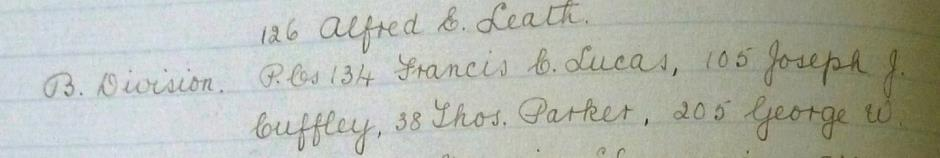 126 Alfred E. Leath.
B. Division. P.Cs 134 Francis C. Lucas, 105 Joseph J.
Cuffley, 38 Thos. Parker, 205 George W.